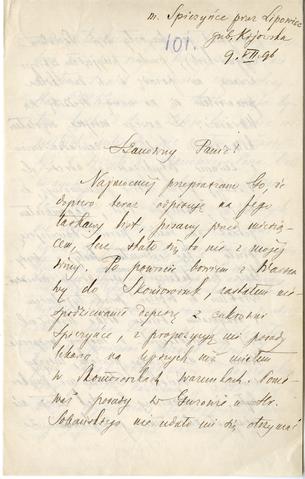 m. Spiczyńce przez Lipowiec
gub. Kijowska
101.
9. VII. 96
Szanowny Panie!
Najmocniej przepraszam Go, że
dopiero teraz odpisuję na Jego
łaskawy list, pisany przed miesią-
cem, lecz stało się to nie z mojej
winy. Po powrocie bowiem z Warsza
wy do zastałem nie
spodziewanie depeszę z
Spiczyniec, z propozycją mi posady
lekarza na lepszych niż miałem
w warunkach. Ponie
waż posady w u Hr.
Sobańskiego nie udało mi się otrzymać